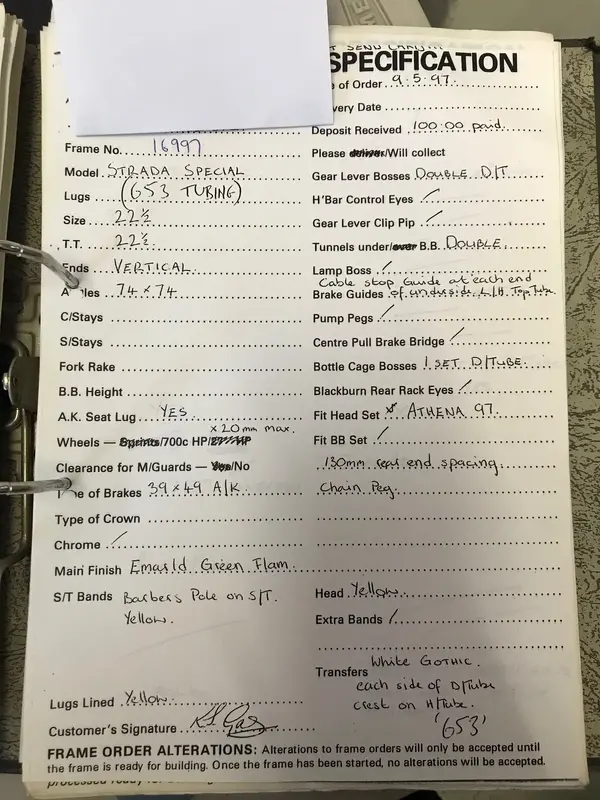 SPECIFICATION
e of Order 9.5.97.
very Date
Deposit Received 100.00 paid.
Frame No. 16997
Please deliver/Will collect
Model STRADA SPECIAL
Gear Lever Bosses DOUBLE D/T
Lugs (653 TUBING)
H'Bar Control Eyes /
Size 22½
Gear Lever Clip Pip /
T.T. 22½
Tunnels under/over B.B. DOUBLE.
Ends VERTICAL.
Lamp Boss /
Cable stop Guide at each end
A les 74 x 74
Brake Guides of underside L/H Top Tube
C/Stays
Pump Pegs /
S/Stays
Centre Pull Brake Bridge /
Fork Rake
Bottle Cage Bosses 1 SET D/TUBE.
B.B. Height
Blackburn Rear Rack Eyes /
A.K. Seat Lug YES
Fit Head Set ATHENA 97.
x 20mm max.
Wheels — Sprints/700c HP/27" HP
Fit BB Set /
Clearance for M/Guards — Yes/No
130mm rear end spacing.
e of Brakes 39 x 49 A/K
Chain Peg.
Type of Crown
Chrome /
Main Finish Emarld Green Flam.
S/T Bands Barbers Pole on S/T.
Yellow.
Head Yellow
Extra Bands /
Transfers White GOTHIC.
each side of D/Tube
crest on H/Tube.
'653'
Lugs Lined Yellow
Customer's Signature
FRAME ORDER ALTERATIONS: Alterations to frame orders will only be accepted until
the frame is ready for building. Once the frame has been started, no alterations will be accepted.